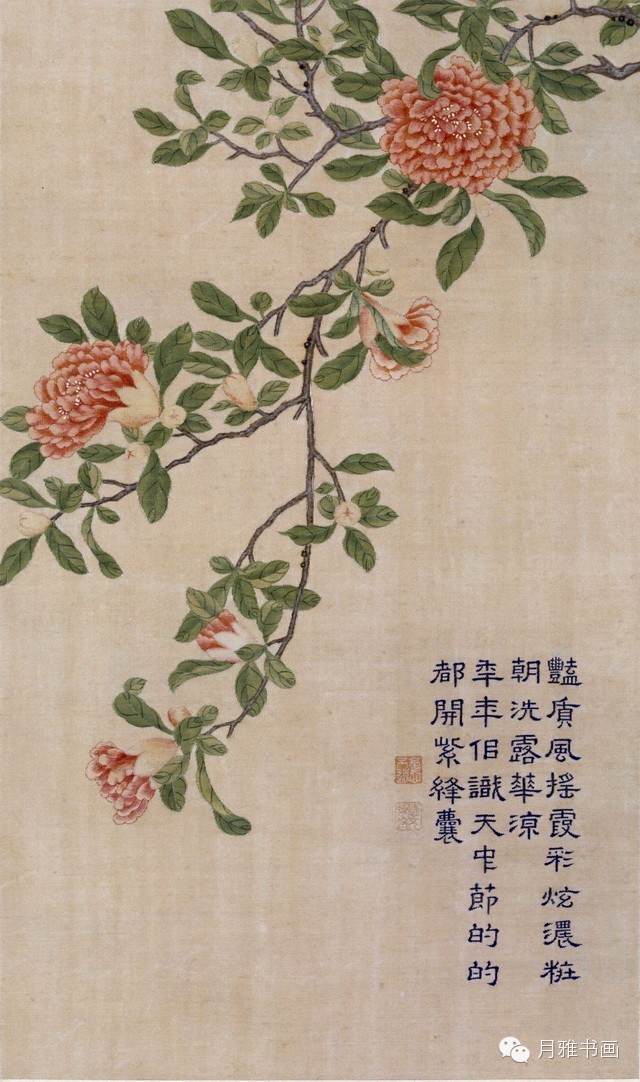 豔質風搖霞彩炫濃粧
朝洗露華涼
秊秊佀識天中節的的
都開紫絳囊
月雅书画